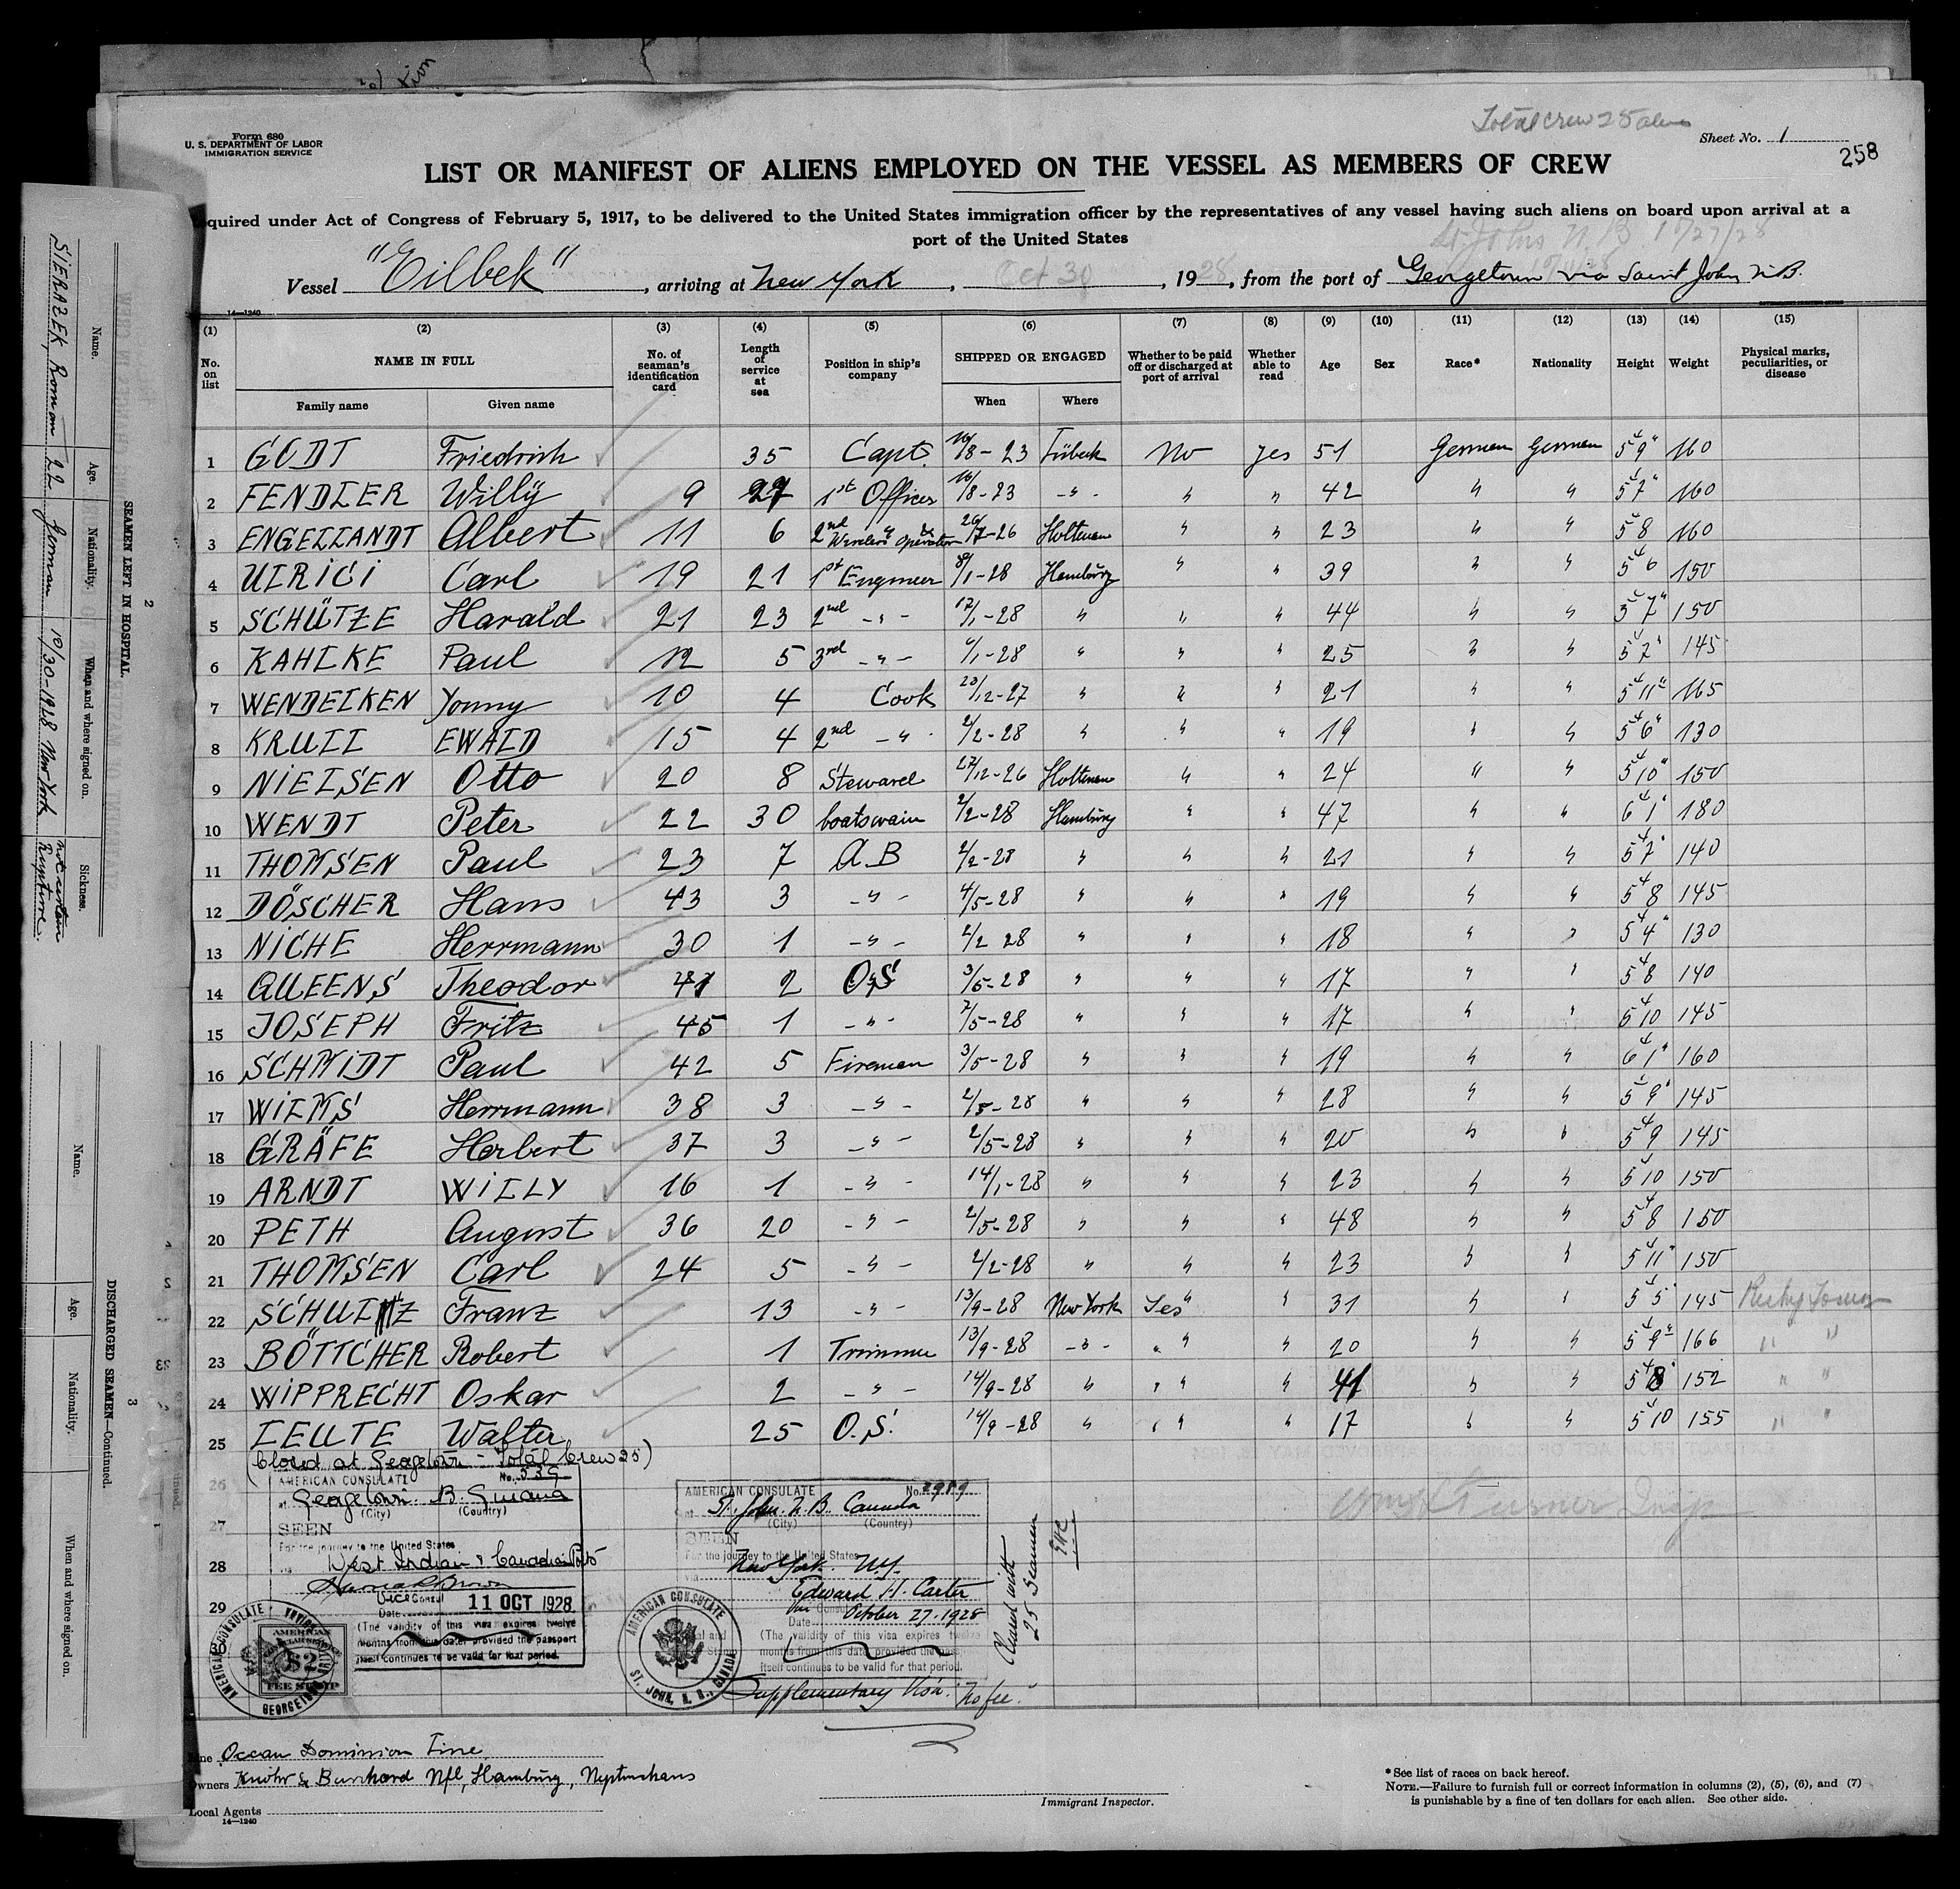 Total crew 25 aliens
Form 680
U. S. DEPARTMENT OF LABOR
IMMIGRATION SERVICE
Sheet No. 1
258
LIST OR MANIFEST OF ALIENS EMPLOYED ON THE VESSEL AS MEMBERS OF CREW
equired under Act of Congress of February 5, 1917, to be delivered to the United States immigration officer by the representatives of any vessel having such aliens on board upon arrival at a
port of the United States
St. Johns N.B. 10/27/28
Vessel "Eilbek", arriving at New York, Oct 30, 1928, from the port of Georgetown via Saint John N.B.
14—1240
(1) (2) (3) (4) (5) (6) (7) (8) (9) (10) (11) (12) (13) (14) (15)
No. on list NAME IN FULL No. of seaman's identification card Length of service at sea Position in ship's company SHIPPED OR ENGAGED Whether to be paid off or discharged at port of arrival Whether able to read Age Sex Race* Nationality Height Weight Physical marks, peculiarities, or disease
Family name Given name When Where
1 GODT Friedrich 35 Capt. 16/8-23 Lübeck No yes 51 German German 5'9" 160
2 FENDLER Willy 9 27 1st Officer 16/8-23 -"- " " 42 " " 5'7" 160
3 ENGELLANDT Albert 11 6 2nd " & Wireless Operator 26/7-26 Holtenau " " 23 " " 5'8 160
4 ULRICI Carl 19 21 1st Engineer 8/1-28 Hamburg " " 39 " " 5'6 150
5 SCHÜTZE Harald 21 23 2nd -"- 17/1-28 " " " 44 " " 5'7" 150
6 KAHLKE Paul 12 5 3rd -"- 6/1-28 " " " 25 " " 5'7" 145
7 WENDELKEN Yonny 10 4 Cook 23/12-27 " " " 21 " " 5'11" 165
8 KRULL EWALD 15 4 2nd -"- 2/2-28 " " " 19 " " 5'6" 130
9 NIELSEN Otto 20 8 Steward 27/12-26 Holtenau " " 24 " " 5'10" 150
10 WENDT Peter 22 30 boatswain 2/2-28 Hamburg " " 47 " " 6'1" 180
11 THOMSEN Paul 23 7 A.B 2/2-28 " " " 21 " " 5'7" 140
12 DÖSCHER Hans 43 3 -"- 4/5-28 " " " 19 " " 5'8 145
13 NICHE Herrmann 30 1 -"- 2/2 28 " " " 18 " " 5'4" 130
14 QUEENS Theodor 41 2 O.S 3/5-28 " " " 17 " " 5'8 140
15 JOSEPH Fritz 45 1 -"- 7/5-28 " " " 17 " " 5'10 145
16 SCHMIDT Paul 42 5 Fireman 3/5-28 " " " 19 " " 6'1" 160
17 WILMS Herrmann 38 3 -"- 2/5-28 " " " 28 " " 5'9" 145
18 GRÄFE Herbert 37 3 -"- 2/5-28 " " " 20 " " 5'9 145
19 ARNDT WILLY 16 1 -"- 14/1-28 " " " 23 " " 5'10 150
20 PETH August 36 20 -"- 2/5-28 " " " 48 " " 5'8 150
21 THOMSEN Carl 24 5 -"- 2/2-28 " " " 23 " " 5'11" 150
22 SCHULTZ Franz 13 -"- 13/9-28 New York Yes " 31 " " 5'5" 145
23 BÖTTCHER Robert 1 Trimmer 13/9-28 -"- " " 20 " " 5'9" 166 " "
24 WIPPRECHT Oskar 2 -"- 14/9-28 " " " 41 " " 5'8" 152 " "
25 LEUTE Walter 25 O.S. 14/9-28 " " " 17 " " 5'10 155 " "
(Closed at Georgetown - Total Crew 25)
26
27
28
29
30
AMERICAN CONSULATE No. 539
at Georgetown B. Guiana
(City) (Country)
SEEN
For the journey to the United States
via West Indian & Canadian Ports
Vice Consul
Date 11 OCT 1928
(The validity of this visa expires twelve
months from this date, provided the passport
itself continues to be valid for that period.
AMERICAN CONSULATE GEORGETOWN
AMERICAN CONSULAR SERVICE
$2
FEE STAMP
AMERICAN CONSULATE No. 2989
at St. John. N. B. Canada
(City) (Country)
SEEN
For the journey to the United States
via New York N.Y.
Edward H. Carter
Vice Consul
Date October 27, 1928
(The validity of this visa expires twelve
months from this date provided the
itself continues to be valid for that period.
Supplementary Visa. "No fee."
AMERICAN CONSULATE ST. JOHN, N. B., CANADA
25 Seamen
Line Ocean Dominion Line
Owners Knöhr & Burchard Nfl, Hamburg, Neptunhaus
Local Agents
14—1240
Immigrant Inspector.
*See list of races on back hereof.
NOTE.—Failure to furnish full or correct information in columns (2), (5), (6), and (7)
is punishable by a fine of ten dollars for each alien. See other side.
2
SEAMEN LEFT IN HOSPITAL
Name. Age. Nationality. When and where signed on. Sickness.
SIERAZEK, Roman 22 German 10/30-1928 New York not certain Rupture.
3
DISCHARGED SEAMEN—Continued.
Name. Age. Nationality. When and where signed on.